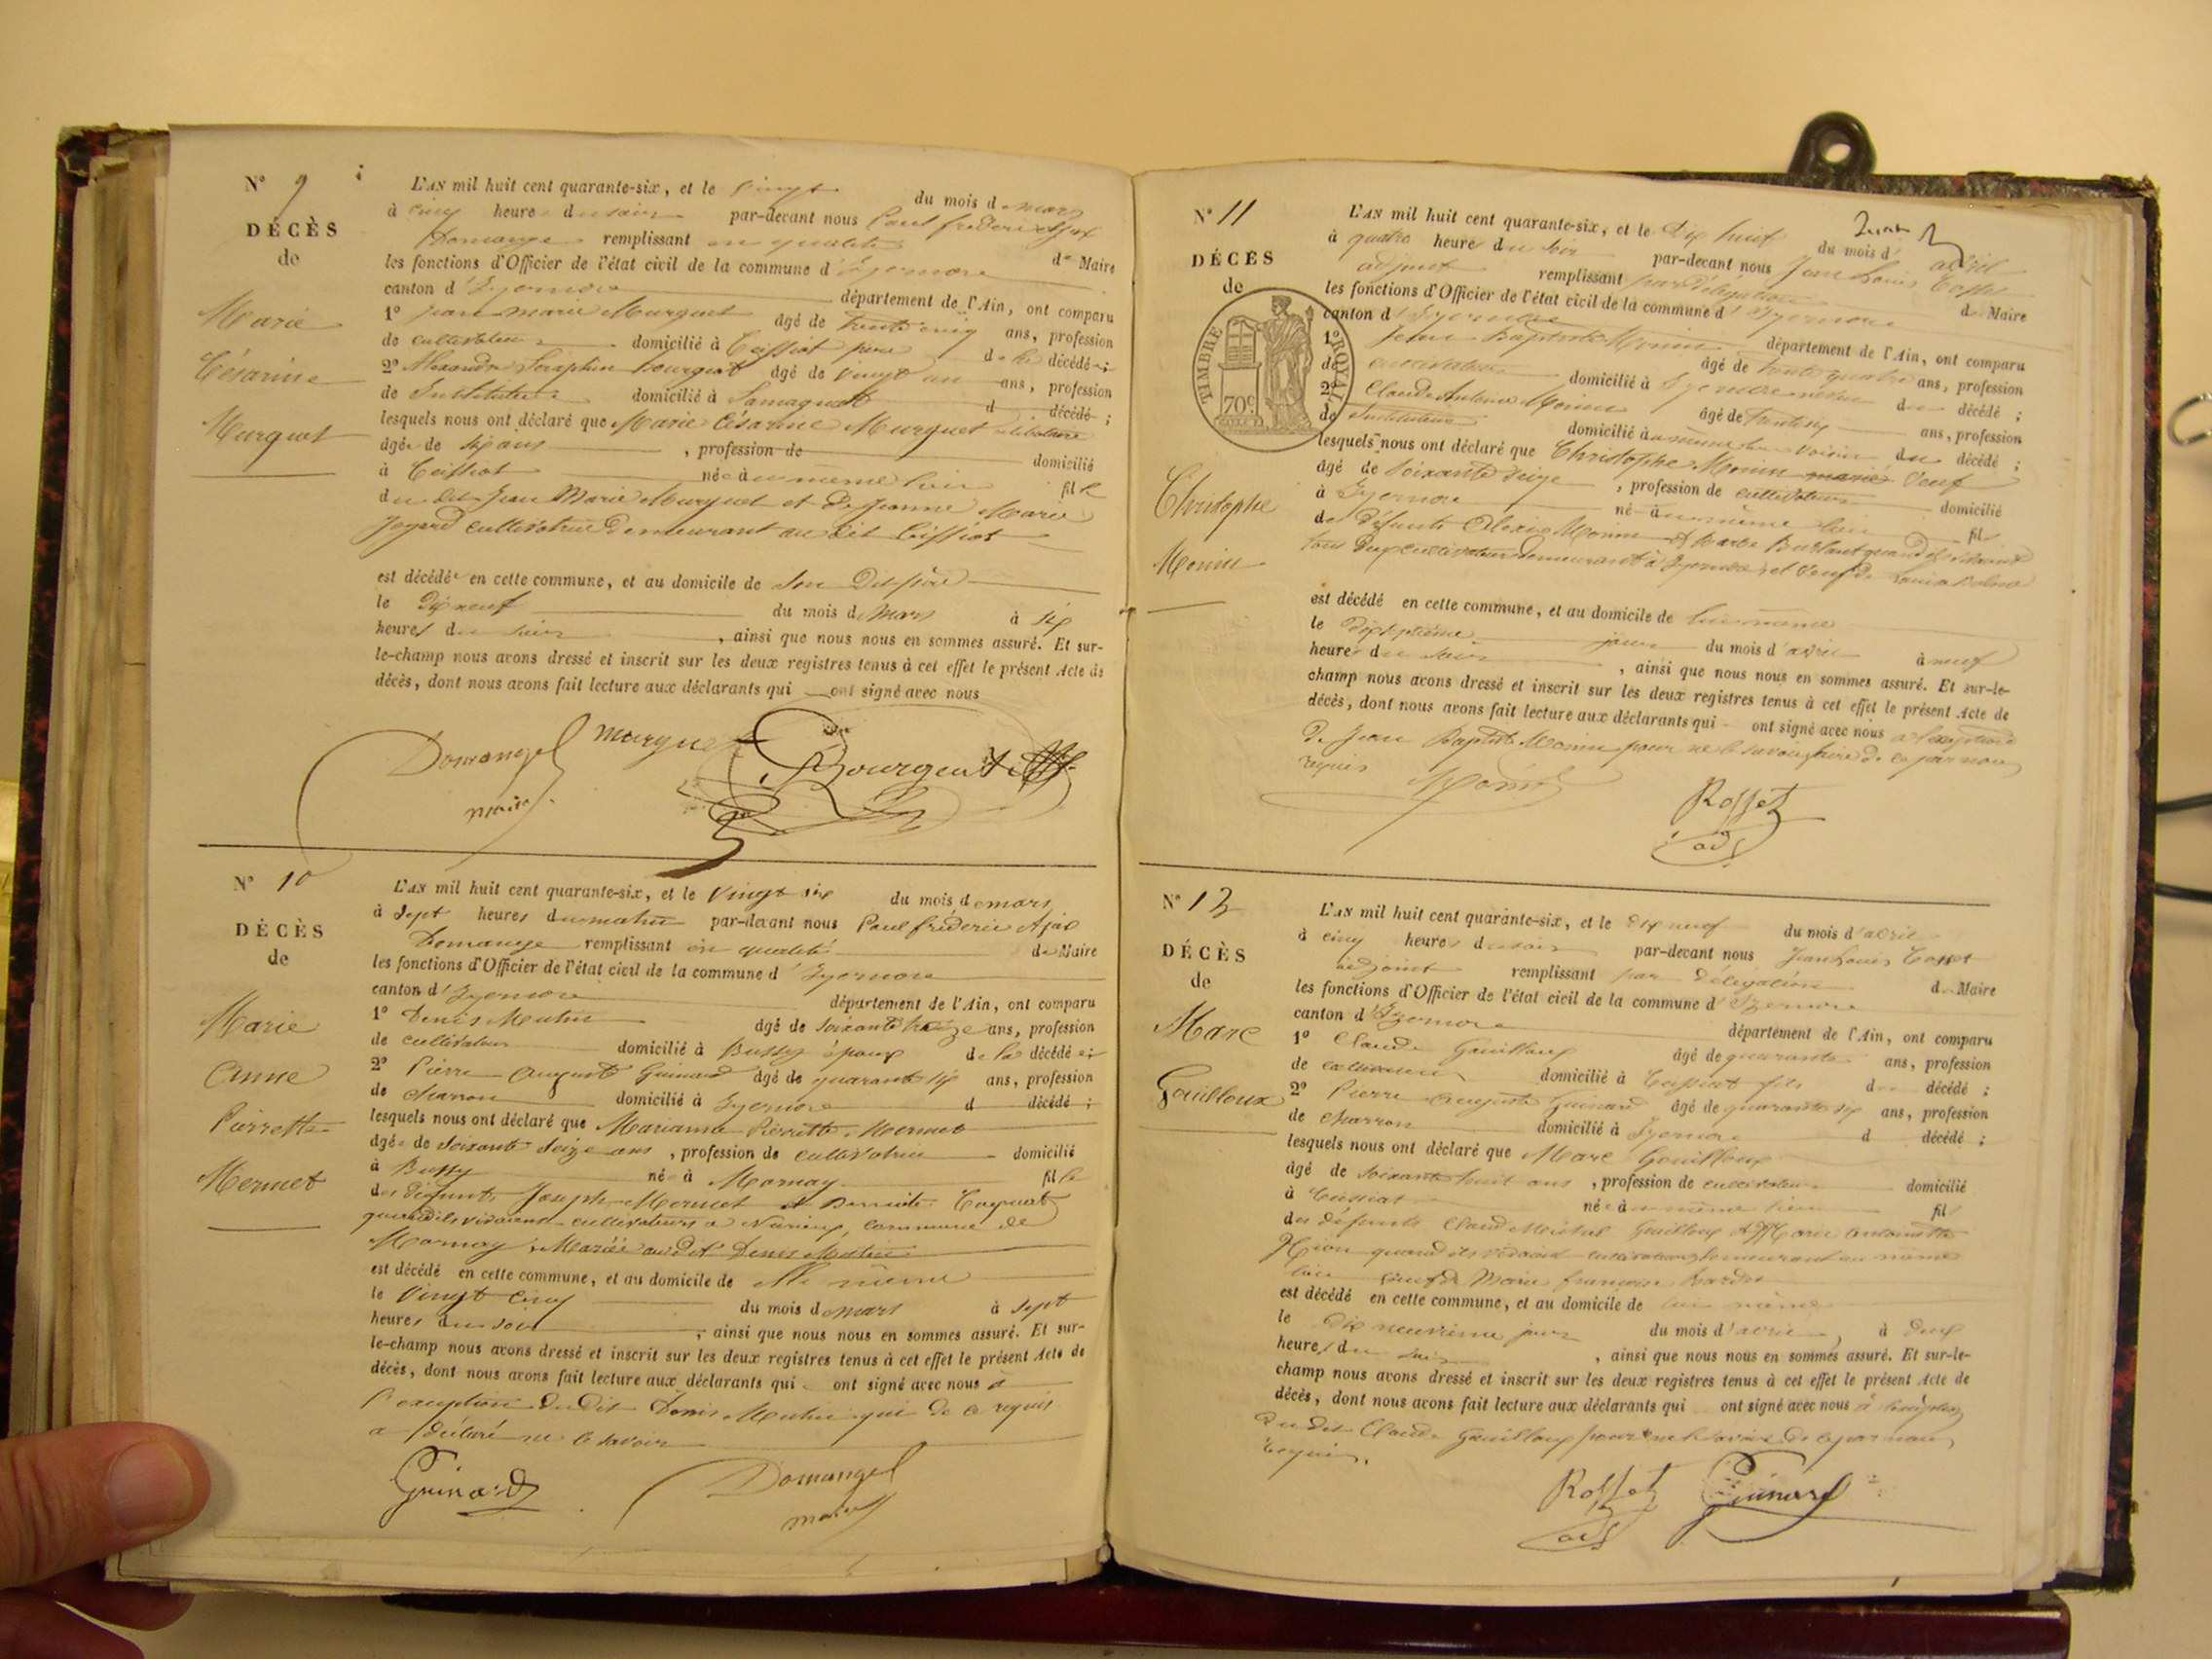 N° 9
DÉCÈS
de
Marie
Césarine
Murguet
L'AN mil huit cent quarante-six, et le vingt du mois de mars
à cinq heures du soir par-devant nous Paul frédéric Ajax
Domange remplissant en qualité de Maire
les fonctions d'Officier de l'état civil de la commune d'Izernore
canton d'Izernore département de l'Ain, ont comparu
1° Jean marie Murguet âgé de trente cinq ans, profession
de cultivateur domicilié à Ceissiat père de la décédée ;
2° Alexandre Séraphin Bourgeat âgé de vingt un ans, profession
de Instituteur domicilié à Samognat d décédé ;
lesquels nous ont déclaré que Marie Césarine Murguet célibataire
âgée de six ans , profession de domicilié
à Ceissiat née à au même lieu fille
du dit Jean Marie Murguet et de Jeanne Marie
Joyard cultivatrice demeurant au dit Ceissiat
est décédée en cette commune, et au domicile de son dit père
le dix neuf du mois de mars à six
heures du soir , ainsi que nous nous en sommes assuré. Et sur-
le-champ nous avons dressé et inscrit sur les deux registres tenus à cet effet le présent Acte de
décès, dont nous avons fait lecture aux déclarants qui ont signé avec nous
Domange murguet Bourgeat
maire
N° 10
DÉCÈS
de
Marie
Anne
Pierrette
Mermet
L'AN mil huit cent quarante-six, et le vingt six du mois de mars
à sept heures du matin par-devant nous Paul frédéric Ajax
Domange remplissant en qualité de Maire
les fonctions d'Officier de l'état civil de la commune d'Izernore
canton d'Izernore département de l'Ain, ont comparu
1° Denis Mutin âgé de soixante treize ans, profession
de cultivateur domicilié à Bussy époux de la décédée ;
2° Pierre Auguste Guinard âgé de quarante six ans, profession
de charron domicilié à Izernore d décédé ;
lesquels nous ont déclaré que Marianne Pierrette Mermet
âgée de soixante seize ans , profession de cultivatrice domicilié
à Bussy née à Mornay fille
des défunts Joseph Mermet et Benoite
quand ils vivaient cultivateurs à commune de
Mornay, Mariée au dit Denis Mutin
est décédé en cette commune, et au domicile de elle même
le vingt cinq du mois de mars à sept
heures du soir , ainsi que nous nous en sommes assuré. Et sur-
le-champ nous avons dressé et inscrit sur les deux registres tenus à cet effet le présent Acte de
décès, dont nous avons fait lecture aux déclarants qui ont signé avec nous à
l'exception du dit Denis Mutin qui de ce requis
a déclaré ne le savoir
Guinard Domange
maire
N° 11
DÉCÈS
de
TIMBRE ROYAL
70c
Christophe
Monin
L'AN mil huit cent quarante-six, et le dix huit du mois d'avril
à quatre heures du soir par-devant nous Jean Louis Rosset
adjoint remplissant par délégation de Maire
les fonctions d'Officier de l'état civil de la commune d'Izernore
canton d'Izernore département de l'Ain, ont comparu
1° Jean Baptiste Monin âgé de trente quatre ans, profession
de cultivateur domicilié à Izernore neveu du décédé ;
2° Claude Antoine Monin âgé de trente six ans, profession
de Instituteur domicilié à au même lieu voisin du décédé ;
lesquels nous ont déclaré que Christophe Monin marié Veuf
âgé de soixante seize , profession de cultivateur domicilié
à Izernore né à au même lieu fils
de défunts Alexis Monin et quand ils vivaient
tous deux cultivateurs demeurant à Izernore et veuf de
est décédé en cette commune, et au domicile de lui même
le dix septième jour du mois d'avril à neuf
heures du soir , ainsi que nous nous en sommes assuré. Et sur-le-
champ nous avons dressé et inscrit sur les deux registres tenus à cet effet le présent Acte de
décès, dont nous avons fait lecture aux déclarants qui ont signé avec nous à l'exception
de Jean Baptiste Monin pour ne le savoir faire de ce par nous
requis Monin
Rosset
adj
N° 12
DÉCÈS
de
Marc
Gouilloux
L'AN mil huit cent quarante-six, et le dix neuf du mois d'avril
à cinq heures du soir par-devant nous Jean Louis Rosset
adjoint remplissant par délégation de Maire
les fonctions d'Officier de l'état civil de la commune d'Izernore
canton d'Izernore département de l'Ain, ont comparu
1° Claude Gouilloux âgé de quarante ans, profession
de cultivateur domicilié à Ceissiat fils du décédé ;
2° Pierre Auguste Guinard âgé de quarante six ans, profession
de charron domicilié à Izernore d décédé ;
lesquels nous ont déclaré que Marc Gouilloux
âgé de soixante huit ans , profession de cultivateur domicilié
à Ceissiat né à au même lieu fils
des défunts Claude Michel Gouilloux et Marie Antoinette
quand ils vivaient cultivateurs demeurant au même
lieu veuf de Marie françoise
est décédé en cette commune, et au domicile de lui même
le dix neuvième jour du mois d'avril, à deux
heures du soir , ainsi que nous nous en sommes assuré. Et sur-le-
champ nous avons dressé et inscrit sur les deux registres tenus à cet effet le présent Acte de
décès, dont nous avons fait lecture aux déclarants qui ont signé avec nous à l'exception
du dit Claude Gouilloux pour ne le savoir de ce par nous
requis.
Rosset Guinard
adj